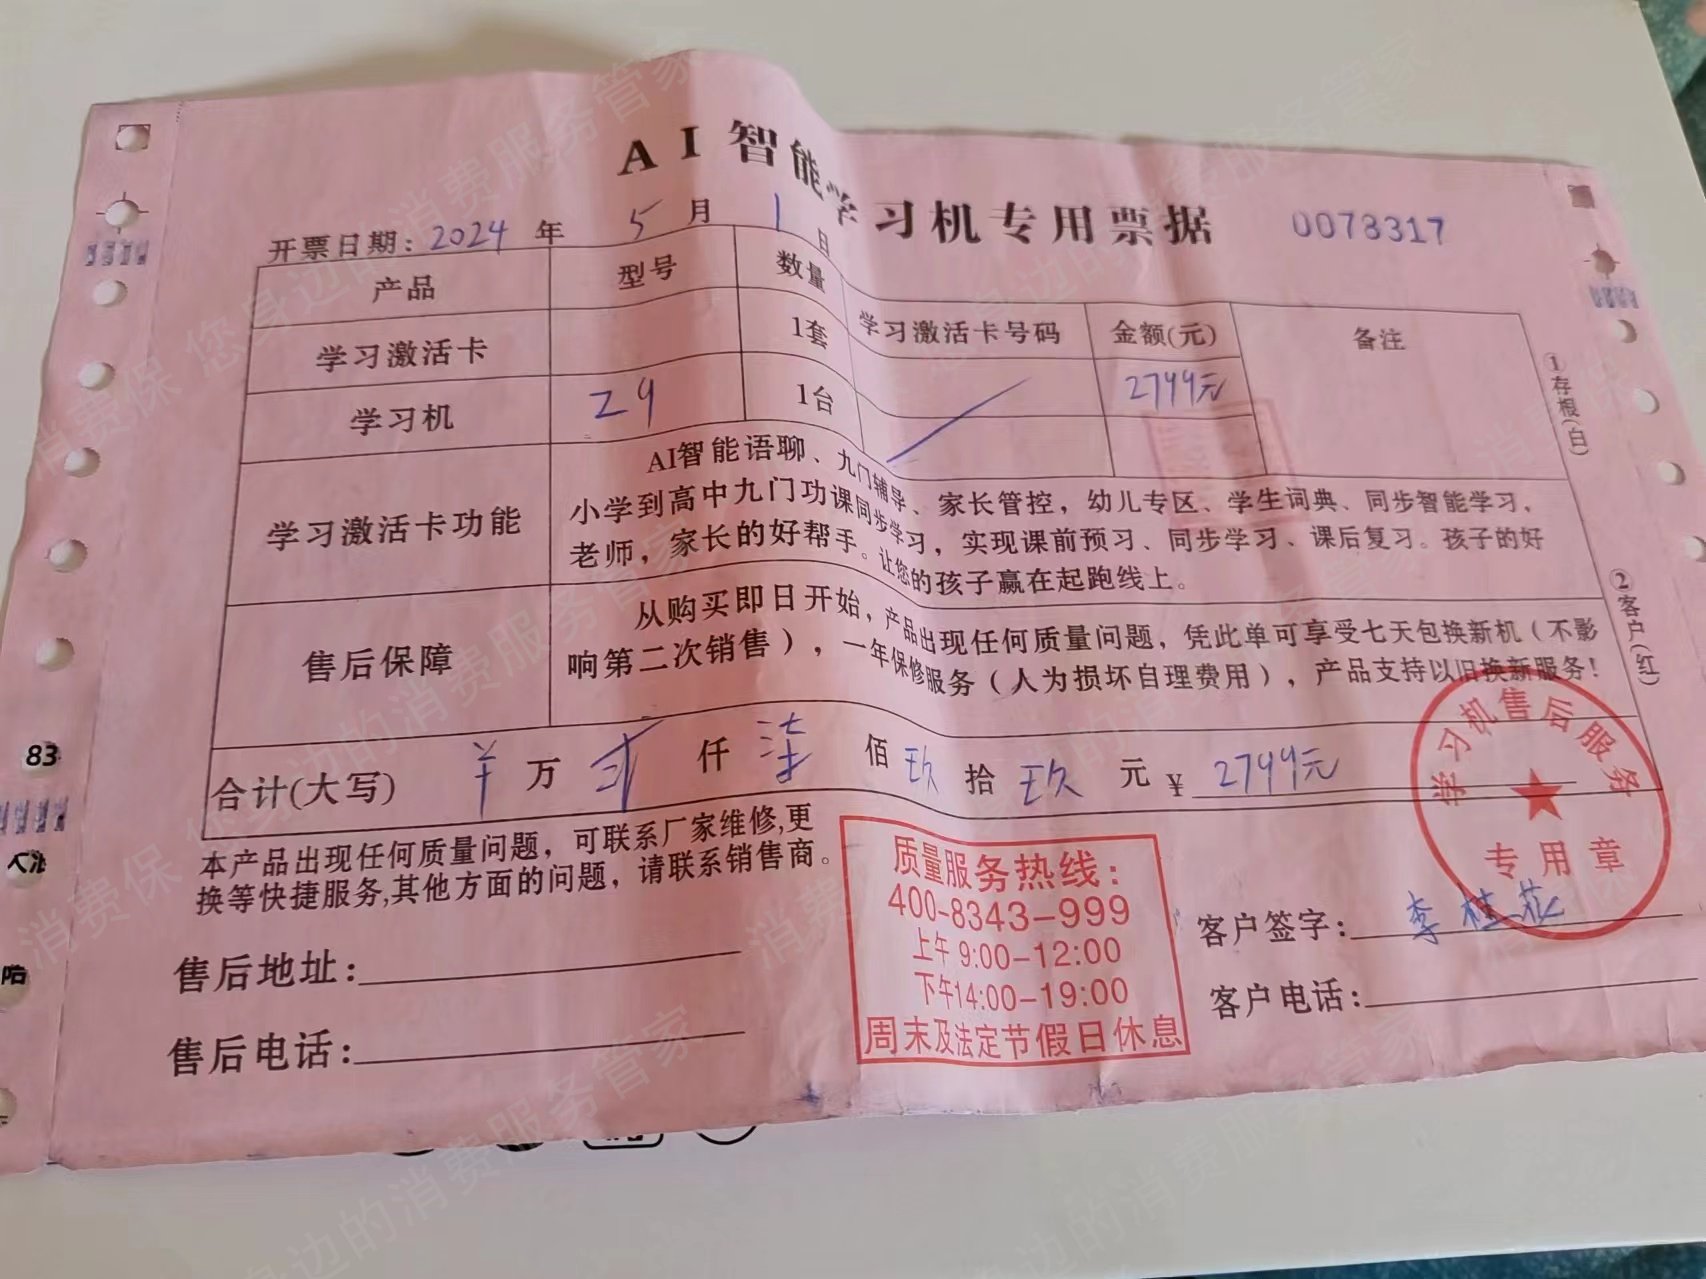 AI智能学习机专用票据
0073317
开票日期：2024年5月1日
产品 型号 数量 学习激活卡号码 金额(元) 备注
学习激活卡 1套 2799元
学习机 Z9 1台
学习激活卡功能
AI智能语聊、九门辅导、家长管控，幼儿专区、学生词典、同步智能学习，
小学到高中九门功课同步学习，实现课前预习、同步学习、课后复习。孩子的好
老师，家长的好帮手。让您的孩子赢在起跑线上。
售后保障
从购买即日开始，产品出现任何质量问题，凭此单可享受七天包换新机（不影
响第二次销售），一年保修服务（人为损坏自理费用），产品支持以旧换新服务！
合计(大写) ¥ 万 贰 仟 柒 佰 玖 拾 玖 元 ¥ 2799元
①存根(白)
②客户(红)
本产品出现任何质量问题，可联系厂家维修,更
换等快捷服务,其他方面的问题，请联系销售商。
售后地址：
售后电话：
质量服务热线：
400-8343-999
上午9:00-12:00
下午14:00-19:00
周末及法定节假日休息
学习机售后服务
专用章
客户签字：李桂花
客户电话：
83
消费保 您身边的消费服务管家